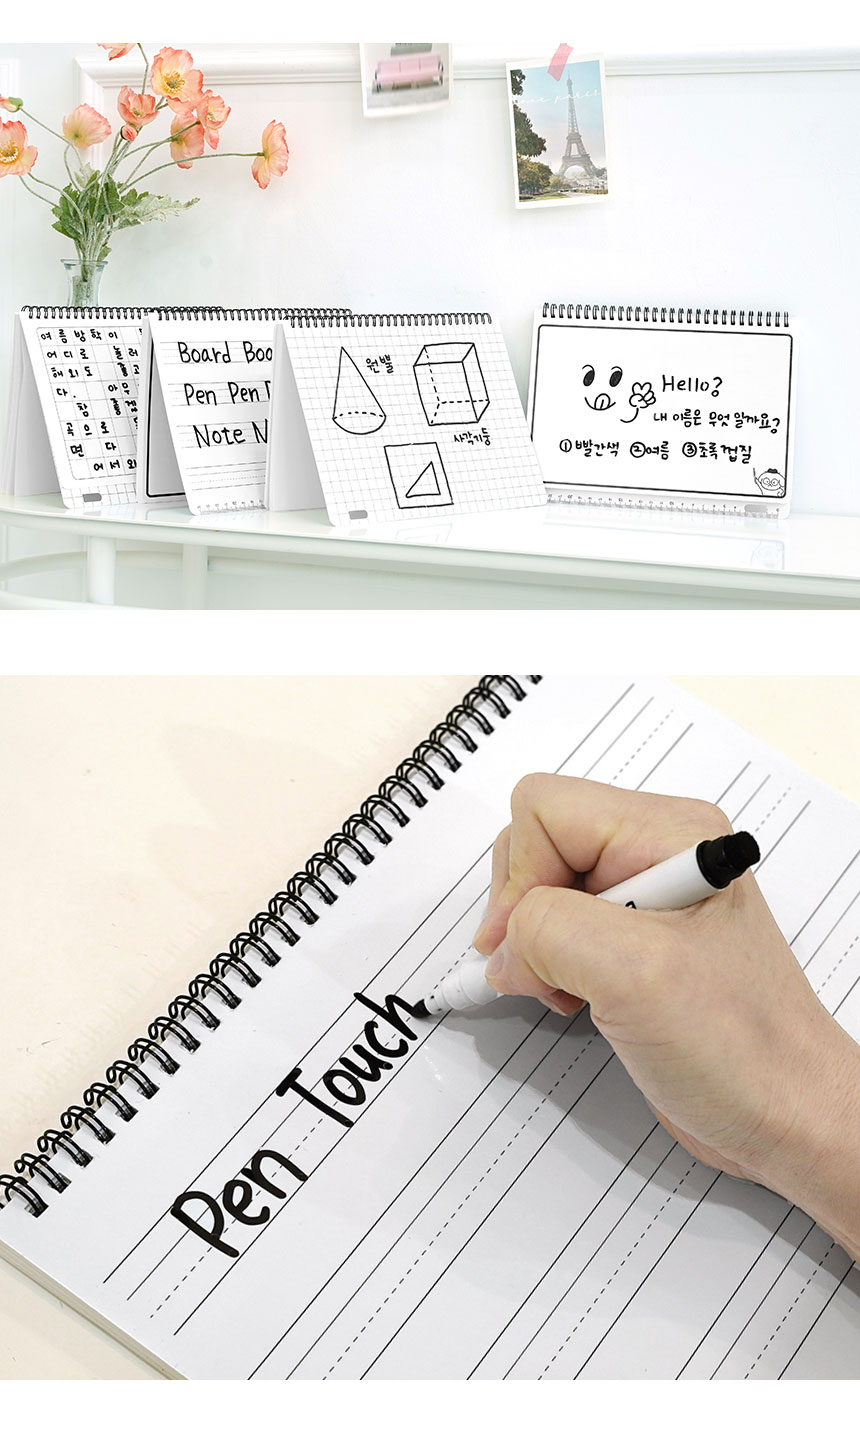 여름방학이
어디로 놀러
해외도
다.
곡으로
면 다
어서 와
Board Boo
Pen Pen
Note N
원뿔
사각기둥
Hello?
내 이름은 무엇 일까요?
①빨간색 ②여름 ③초록껍질
Pen Touch